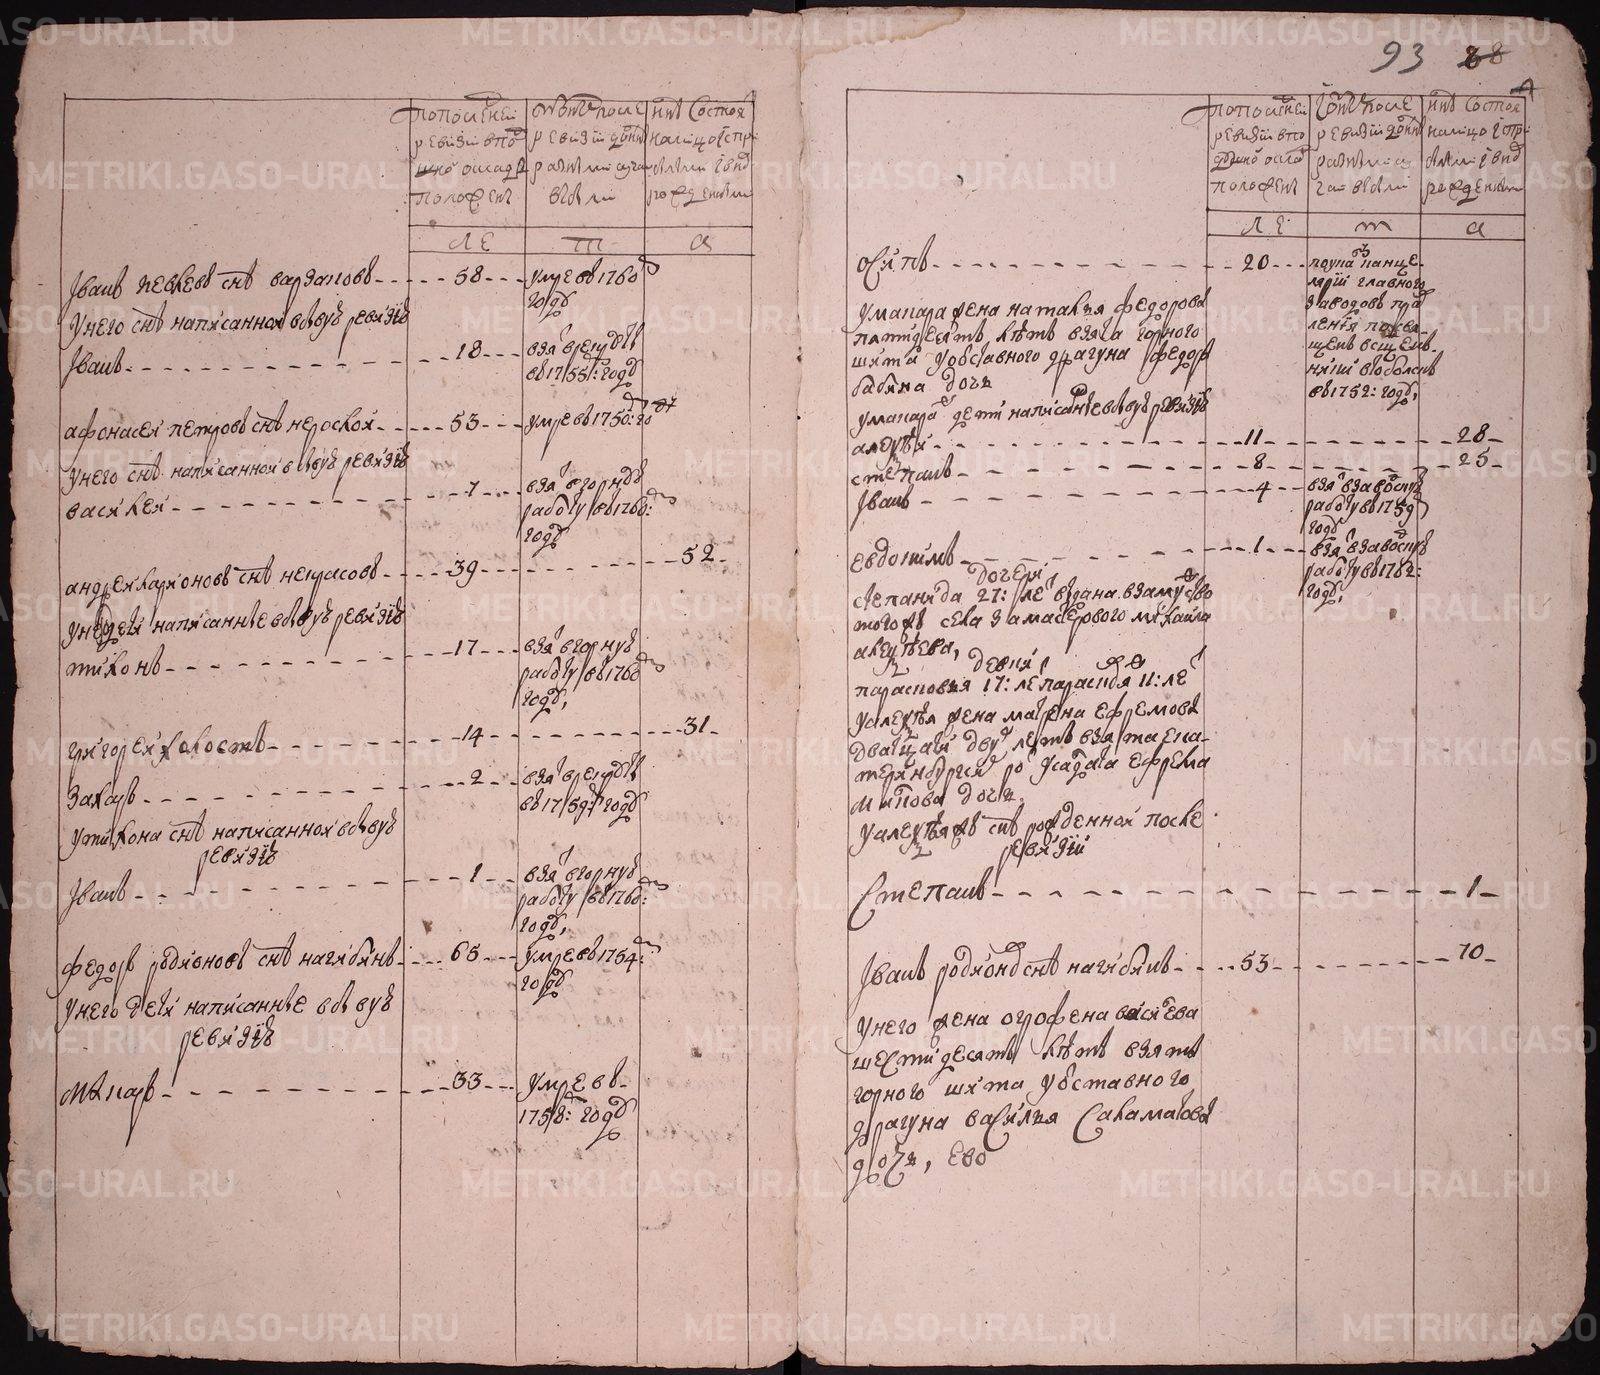 93 88
по последней
ревизии в по
душной оклад
положены
из того после
ревизии до ныне
разными случа
и выбыли
ныне состоя
налицо с при
былыми и вновь
рожденными
ЛЕ
т
а
Иванъ певлевъ снъ варзаповъ 58 умре въ 1760 году
У него снъ написанной в тъ ревизiю
Иванъ 18 взят в рекруты въ 1755: году
афонасей петровъ снъ нероской 53 умре въ 1750: го
У него снъ написанной в тъ ревизiю
василей 7 взят в горную работу въ 1760: году
андрей ларионовъ снъ некрасовъ 39 52
У него дети написанные в тъ ревизiю
тихонъ 17 взят в горную работу въ 1760 году,
григорей холостъ 14 31
Захаръ 2 взят в рекруты въ 1759 году
У тихона снъ написанной в тъ
ревизiю
Иванъ 1 взят в горную работу въ 1760: году,
федоръ родионовъ снъ нагибинъ 65 умре въ 1754: году
У него дети написанные в тъ
ревизiю
макаръ 33 умре въ 1758: году
по последней
ревизии в по
душной оклад
положены
из того после
ревизии до ныне
разными слу
чаи выбыли
ныне состоя
налицо с при
былыми и вновь
рожденными
ЛЕ
т
а
Осипъ 20 по указу канце
лярiи главного
заводовъ прав
ленiя
въ 1752: году,
У макара жена наталья федорова
пятидесятъ летъ взята горного
щита у отставного драгуна федора
бабина дочь
У макара дети написанные в тъ ревизiю
алексей 11 28
степанъ 8 25
Иванъ 4 взят в заводскую работу въ 1759 году
евдокимъ 1 взят в заводскую работу въ 1762: году,
дочери
степанида 27: ле выдана в замужство
того ж села за мастерового михаила
алексеева,
девки
парасковья 17: ле парасковья 11: ле
У алексея жена матрена ефремова
дватцати дву летъ взята ека
теринбурха у солдата ефрема
дочь
У алексея ж снъ рожденной после
ревизiи
Степанъ 1
Иванъ родионовъ снъ нагибинъ 53 70
У него жена огрофена васильева
шестидесятъ летъ взята
горного щита у отставного
драгуна василья Саламатова
дочь, ево
METRIKI.GASO-URAL.RU